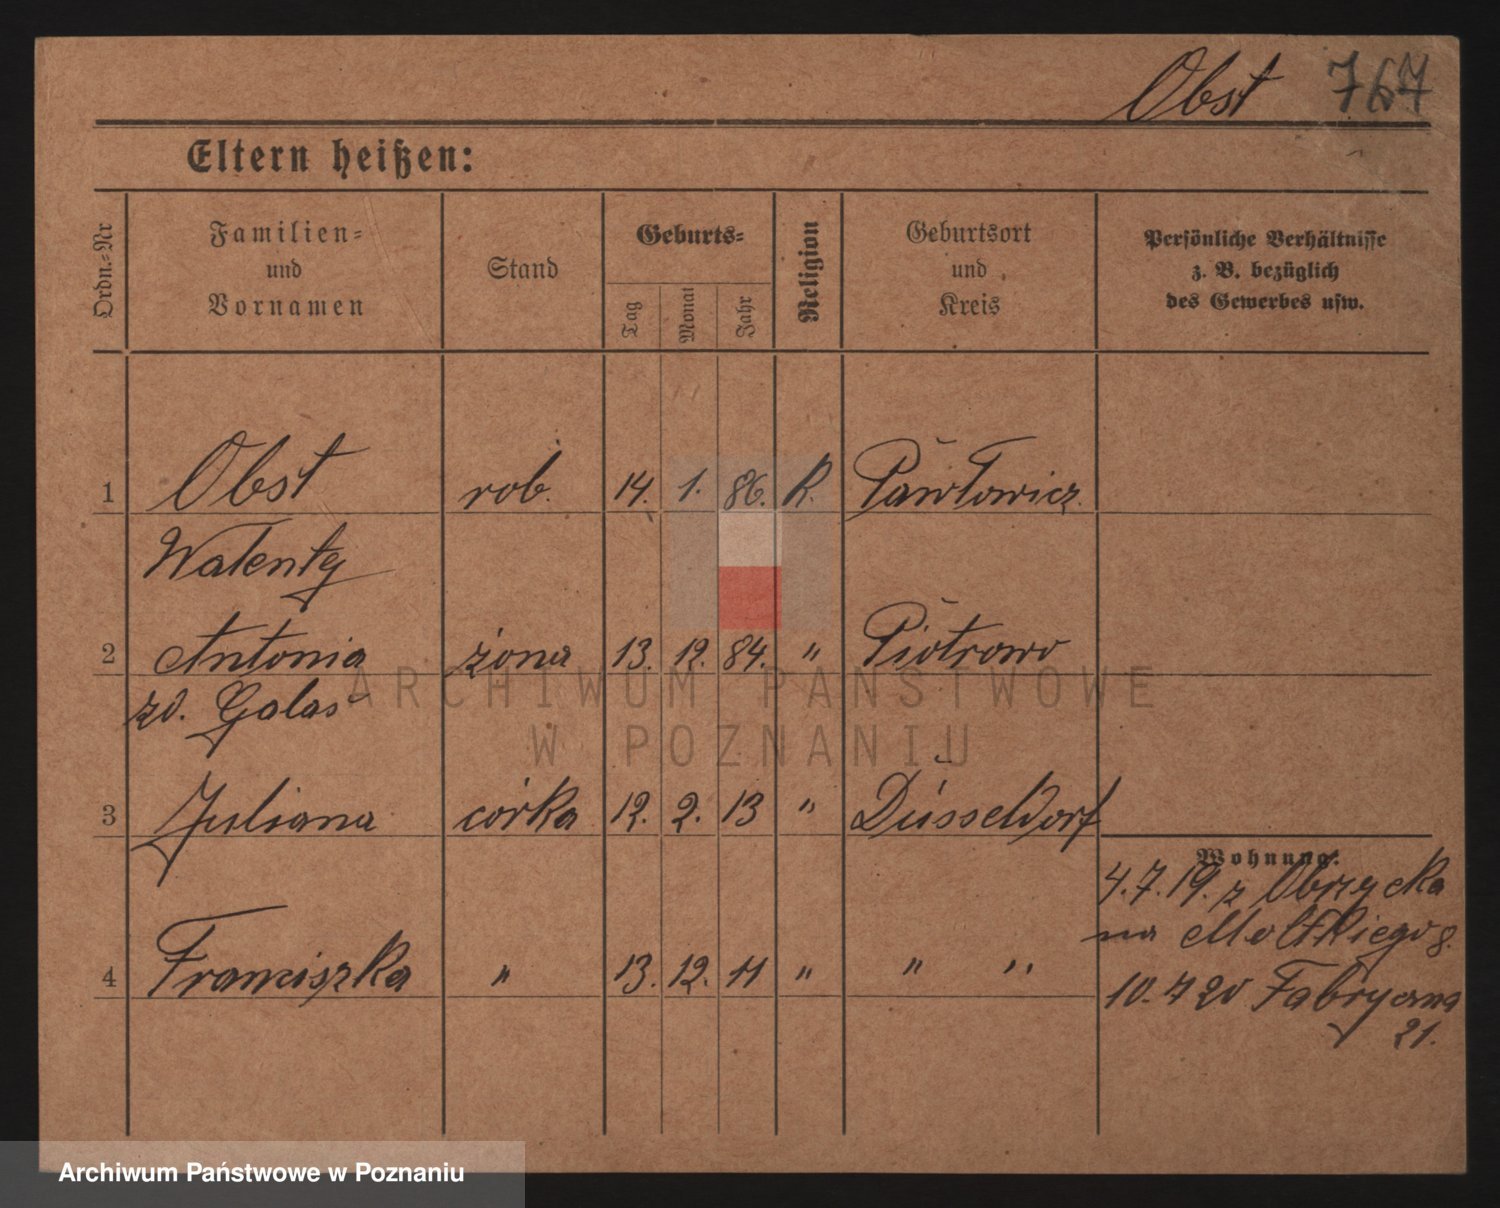 Obst 767
Eltern heißen:
Ordn.-Nr
Familien-
und
Vornamen
Stand
Geburts-
Tag
Monat
Jahr
Religion
Geburtsort
und
Kreis
Persönliche Verhältnisse
z. B. bezüglich
des Gewerbes usw.
1 Obst rob. 14. 1. 86. R. Pawłowicz
Walenty
2 Antonia żona 13. 12. 84. " Piotrowo
zd. Galas
3 Juliana córka 12. 2. 13 " Düsseldorf
Wohnung:
4.7.19. z Obrzycka
na Moltkiego 8.
4 Franciszka " 13. 12. 11 " " "
10.7 20 Fabryczna
21.
ARCHIWUM PAŃSTWOWE
W POZNANIU
Archiwum Państwowe w Poznaniu